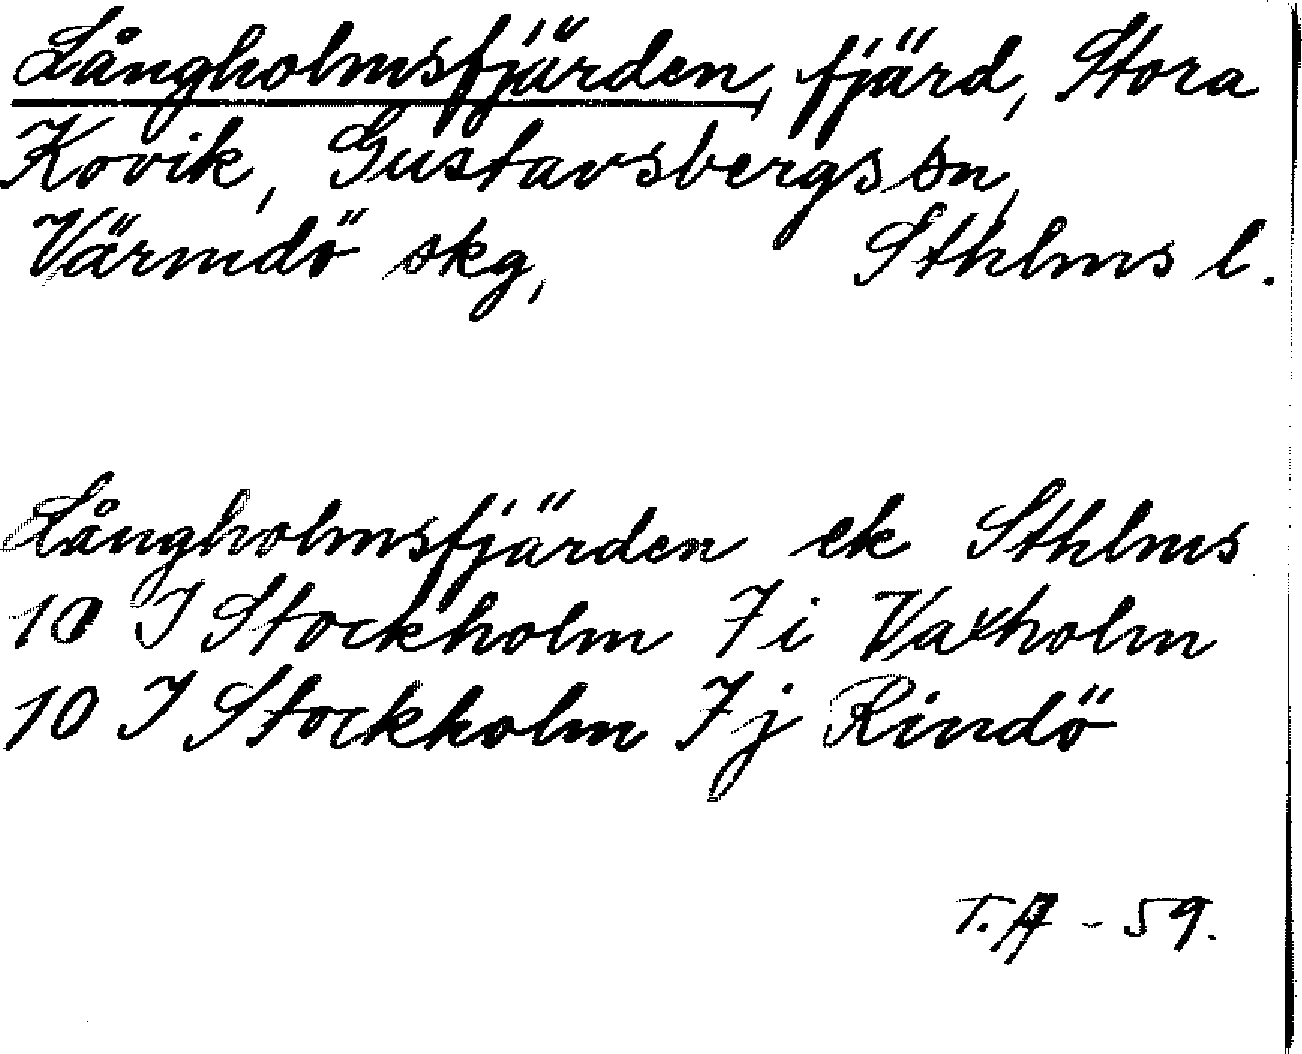 Långholmsfjärden, fjärd, Stora
Kovik, Gustavsbergs sn,
Värmdö skg, Sthlms l.
Långholmsfjärden ek Sthlms
10 I Stockholm 7 i Vaxholm
10 I Stockholm 7 j Rindö
T.A - 59.